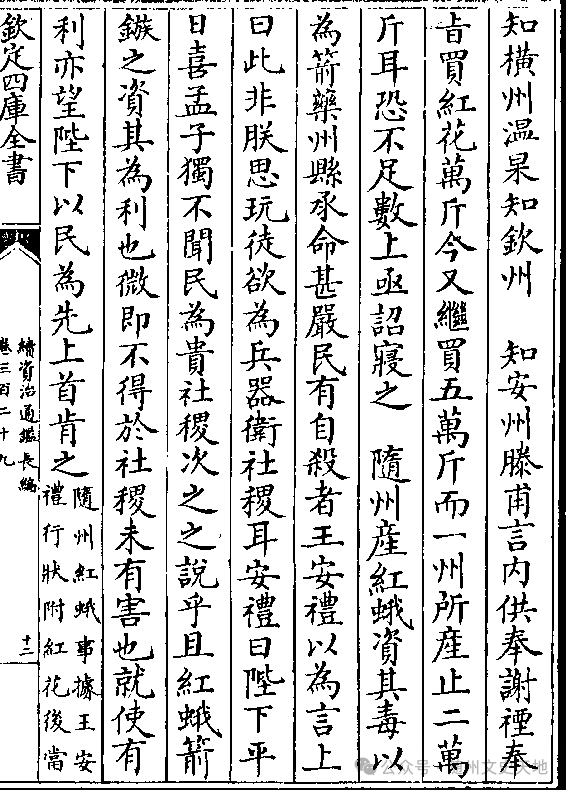 知橫州温杲知欽州　知安州滕甫言内供奉謝禋奉
㫖買紅花萬斤今又繼買五萬斤而一州所産止二萬
斤耳恐不足數上亟詔寢之　隨州産紅蛾資其毒以
為箭藥州縣承命甚嚴民有自殺者王安禮以為言上
曰此非朕思玩徒欲為兵器衛社稷耳安禮曰陛下平
日喜孟子獨不聞民為貴社稷次之之說乎且紅蛾箭
鏃之資其為利也微即不得於社稷未有害也就使有
利亦望陛下以民為先上首肯之
隨州紅蛾事據王安
禮行狀附紅花後當
欽定四庫全書
續資治通鑑長編
卷三百二十九
十三
公众号